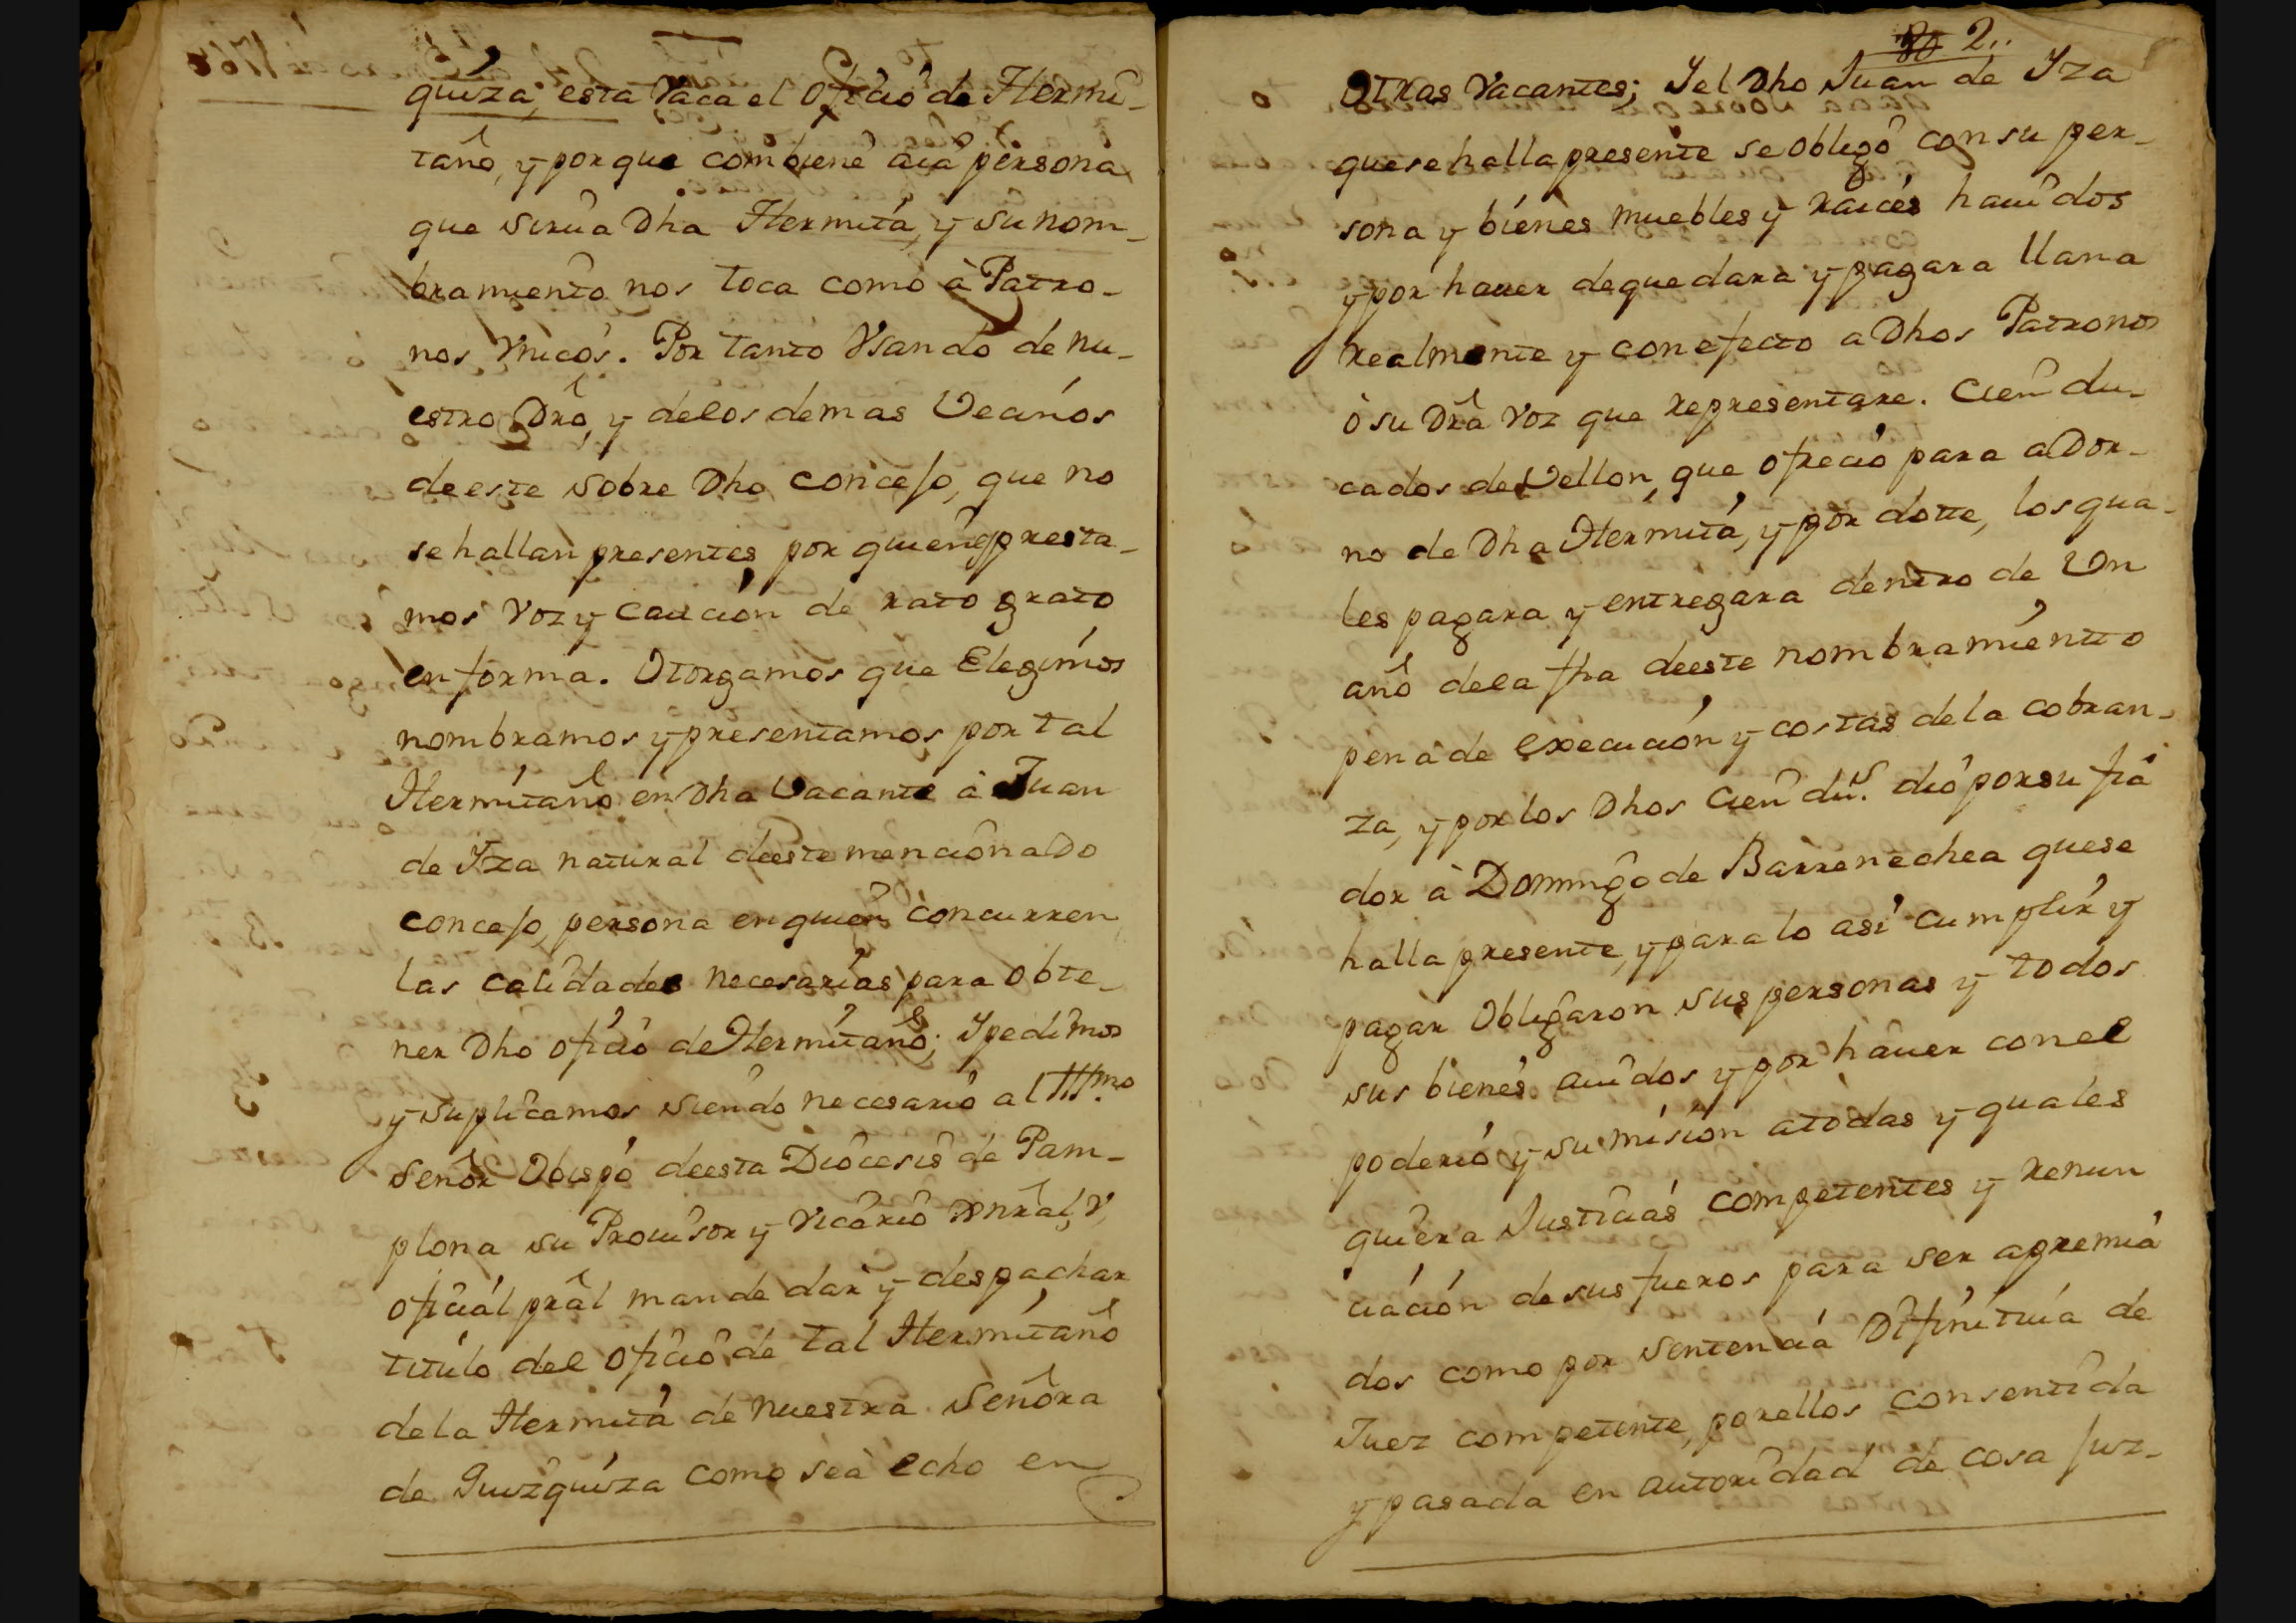 quiza, esta Vaca el Oficio de Hermi-
taño, y porque combiene aia persona
que sirua Dha Hermita, y su nom-
bramiento nos toca como à Patro-
nos Vnicos. Por tanto Vsando de nu-
estro Dro, y delos demas Vecinos
deeste sobre Dho concejo, que no
se hallan presentes por quienes presta-
mos Voz y Caucion de rato grato
en forma. Otorgamos que Elegimos
nombramos y presentamos por tal
Hermitaño en Dha Vacante à Juan
de Yza natural deeste mencionado
concejo, persona en quien concurren
las calidades necesarias para obte-
ner Dho oficio de Hermitaño; Ypedimos
y suplicamos siendo necesario al Illmo
Señor Obispo deesta Diocesis de Pam-
plona su Prouisor y Vicario Genral, V
oficial pral mande dar y despachar
titulo del oficio de tal Hermitaño
dela Hermita de Nuestra Señora
de Guizquiza como sea echo en
2..
Otras Vacantes; Yel Dho Juan de Yza
quese halla presente se obligò con su per-
sona y bienes muebles y raices hauidos
y por hauer deque dara y pagara llana
realmente y con efecto a Dhos Patronos
ò su Dra Voz que representare. Cien du-
cados de Vellon, que ofrecio para aDor-
no de Dha Hermita, y por dotte, los qua-
les pagara y entregara dentro de Vn
año dela fha deeste nombramientto
pena de execucion y costas de la cobran-
za, y por los Dhos Cien dus. dio por su fia
dor à Domingo de Barrenechea quese
halla presente, y para lo asi cumplir y
pagar Obligaron sus personas y todos
sus bienes auidos y por hauer con el
poderio y sumision atodas y quales
quiera Justicias competentes y renun
ciacion de sus fueros para ser apremia
dos como por sentencia Difinitiua de
Juez competente, por ellos consentida
y pasada en autoridad de cosa juz-